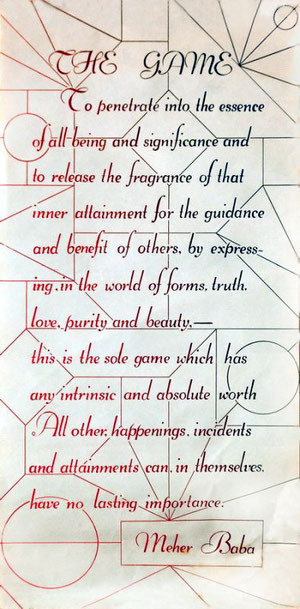 THE GAME
To penetrate into the essence
of all being and significance and
to release the fragrance of that
inner attainment for the guidance
and benefit of others, by express-
ing, in the world of forms, truth,
love, purity and beauty,—
this is the sole game which has
any intrinsic and absolute worth
All other, happenings, incidents
and attainments can, in themselves,
have no lasting importance.
Meher Baba